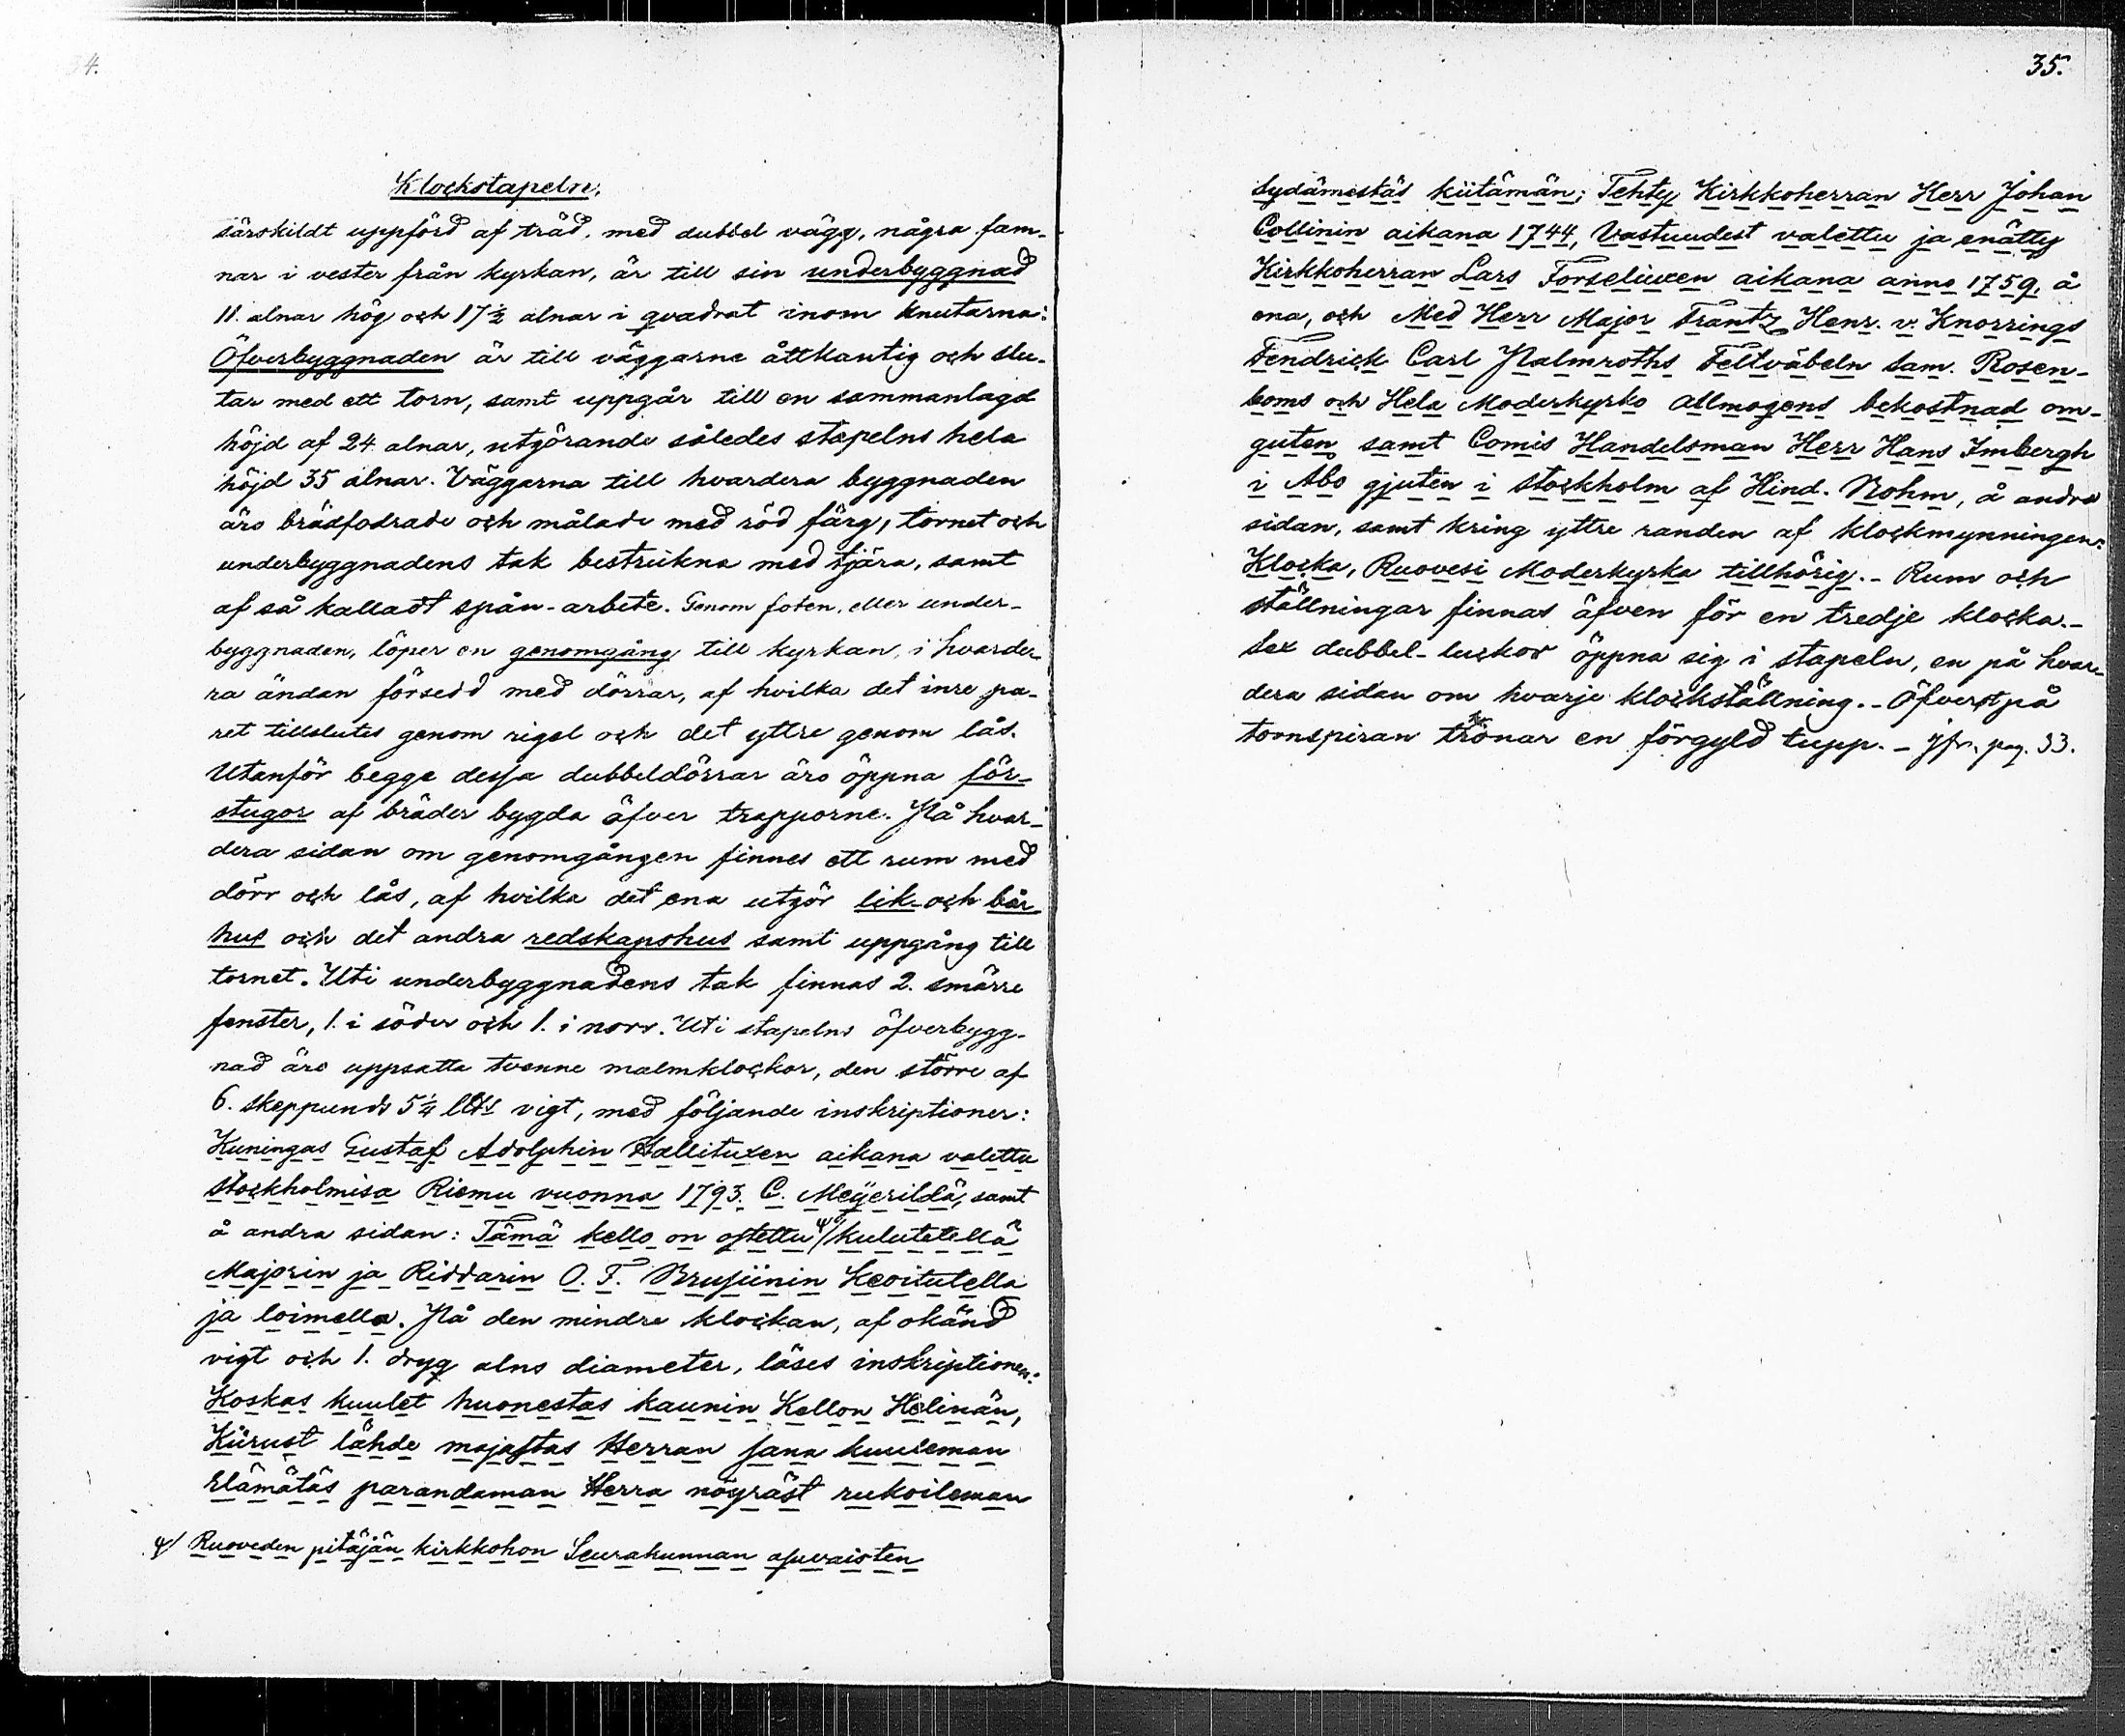 34.
Klockstapeln.
särskildt uppförd af träd, med dubbel vägg, några fam-
nar i vester från kyrkan, är till sin underbyggnad
11. alnar hög och 17 ½ alnar i qvadrat inom knutarna:
Öfverbyggnaden är till väggarne åttkantig och slu-
tar med ett torn, samt uppgår till en sammanlagd
höjd af 24 alnar, utgörande således stapelns hela
höjd 35 alnar. Väggarna till hvardera byggnaden
äro brädfodrade och målade med röd färg, tornet och
underbyggnadens tak bestrukna med tjära, samt
af så kalladt spån-arbete. Genom foten, eller under-
byggnaden, löper en genomgång till kyrkan, i hvarde-
ra ändan försedd med dörrar, af hvilka det inre pa-
ret tillslutes genom rigel och det yttre genom lås.
Utanför begge dessa dubbeldörrar äro öppna för-
stugor af bräder bygda öfver trapporne. På hvar-
dera sidan om genomgången finnes ett rum med
dörr och lås, af hvilka det ena utgör lik- och bår-
hus och det andra redskapshus samt uppgång till
tornet. Uti underbyggnadens tak finnas 2. smärre
fenster, 1. i söder och 1. i norr. Uti stapelns öfverbygg-
nad äro uppsatta tvenne malmklockor, den större af
6. skeppunds 5 ¼ vigt, med följande inskriptioner:
Kuningas Gustaf Adolphin Hallituxen aikana valettu
Stockholmisa Riemu vuonna 1793. C. Meÿerildä, samt
å andra sidan: Tämä kello on ostettu ψ/ kulutetellä
Majorin ja Riddarin O. F. Brusiinin
ja loimella. På den mindre klockan, af okänd
vigt och 1. dryg alns diameter, läses inskriptionen:
Koskas kuulet huonestas kaunin Kellon Helinän,
Kiirust lähde majastas Herran sana kuuleman
Elämätäs parandaman Herra nöyräst rukoileman
ψ/ Ruoveden pitäjän kirkkohon Seurakunnan asuvaisten
35.
Sydämestäs kiitämän; Tehty Kirkkoherran Herr Johan
Collinin aikana 1744, Vastuudest valettu ja enätty
Kirkkoherran Lars Forseliuxen aikana anno 1759, å
ena, och Med Herr Major Frantz Henr. v. Knorrings
Fendrick Carl Palmroths Feltväbeln Sam. Rosen-
boms och Hela Moderkyrko allmogens bekostnad om-
guten samt Comis Handelsman Herr Hans Imbergh
i Abo gjuten i Stockholm af Hind. Rohm, å andra
sidan, samt kring yttre randen af klockmynningen:
Klocka, Ruovesi Moderkyrka tillhörig. - Rum och
ställningar finnas äfven för en tredje klocka. -
Sex dubbel-luckor öppna sig i stapeln, en på hvar-
dera sidan om hvarje klockställning. - Öfverst på
tornspiran trönar en förgyld tupp. - Jfr. pag. 33.